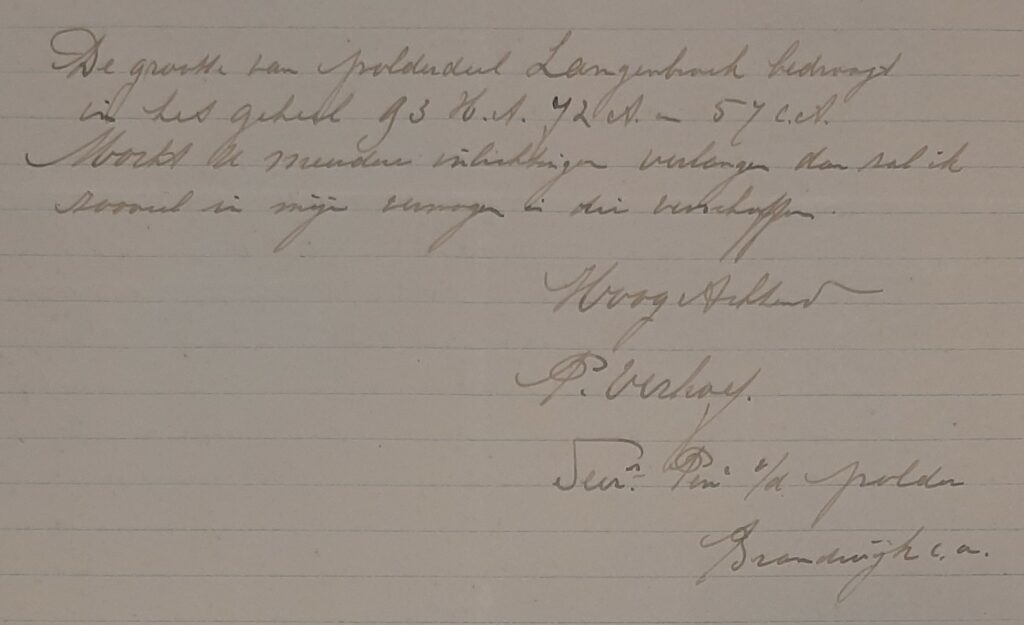 De grootte van polderdeel Langenbroek bedraagt
in het geheel 93 H.A. 72 A. en 57 c.A.
Mocht U meerdere inlichtingen verlangen dan zal ik
zooveel in mijn vermogen is die verschaffen.
Hoog Achtend
P. Verhoef.
Secr. Penr v/d polder
Brandwijk c.a.